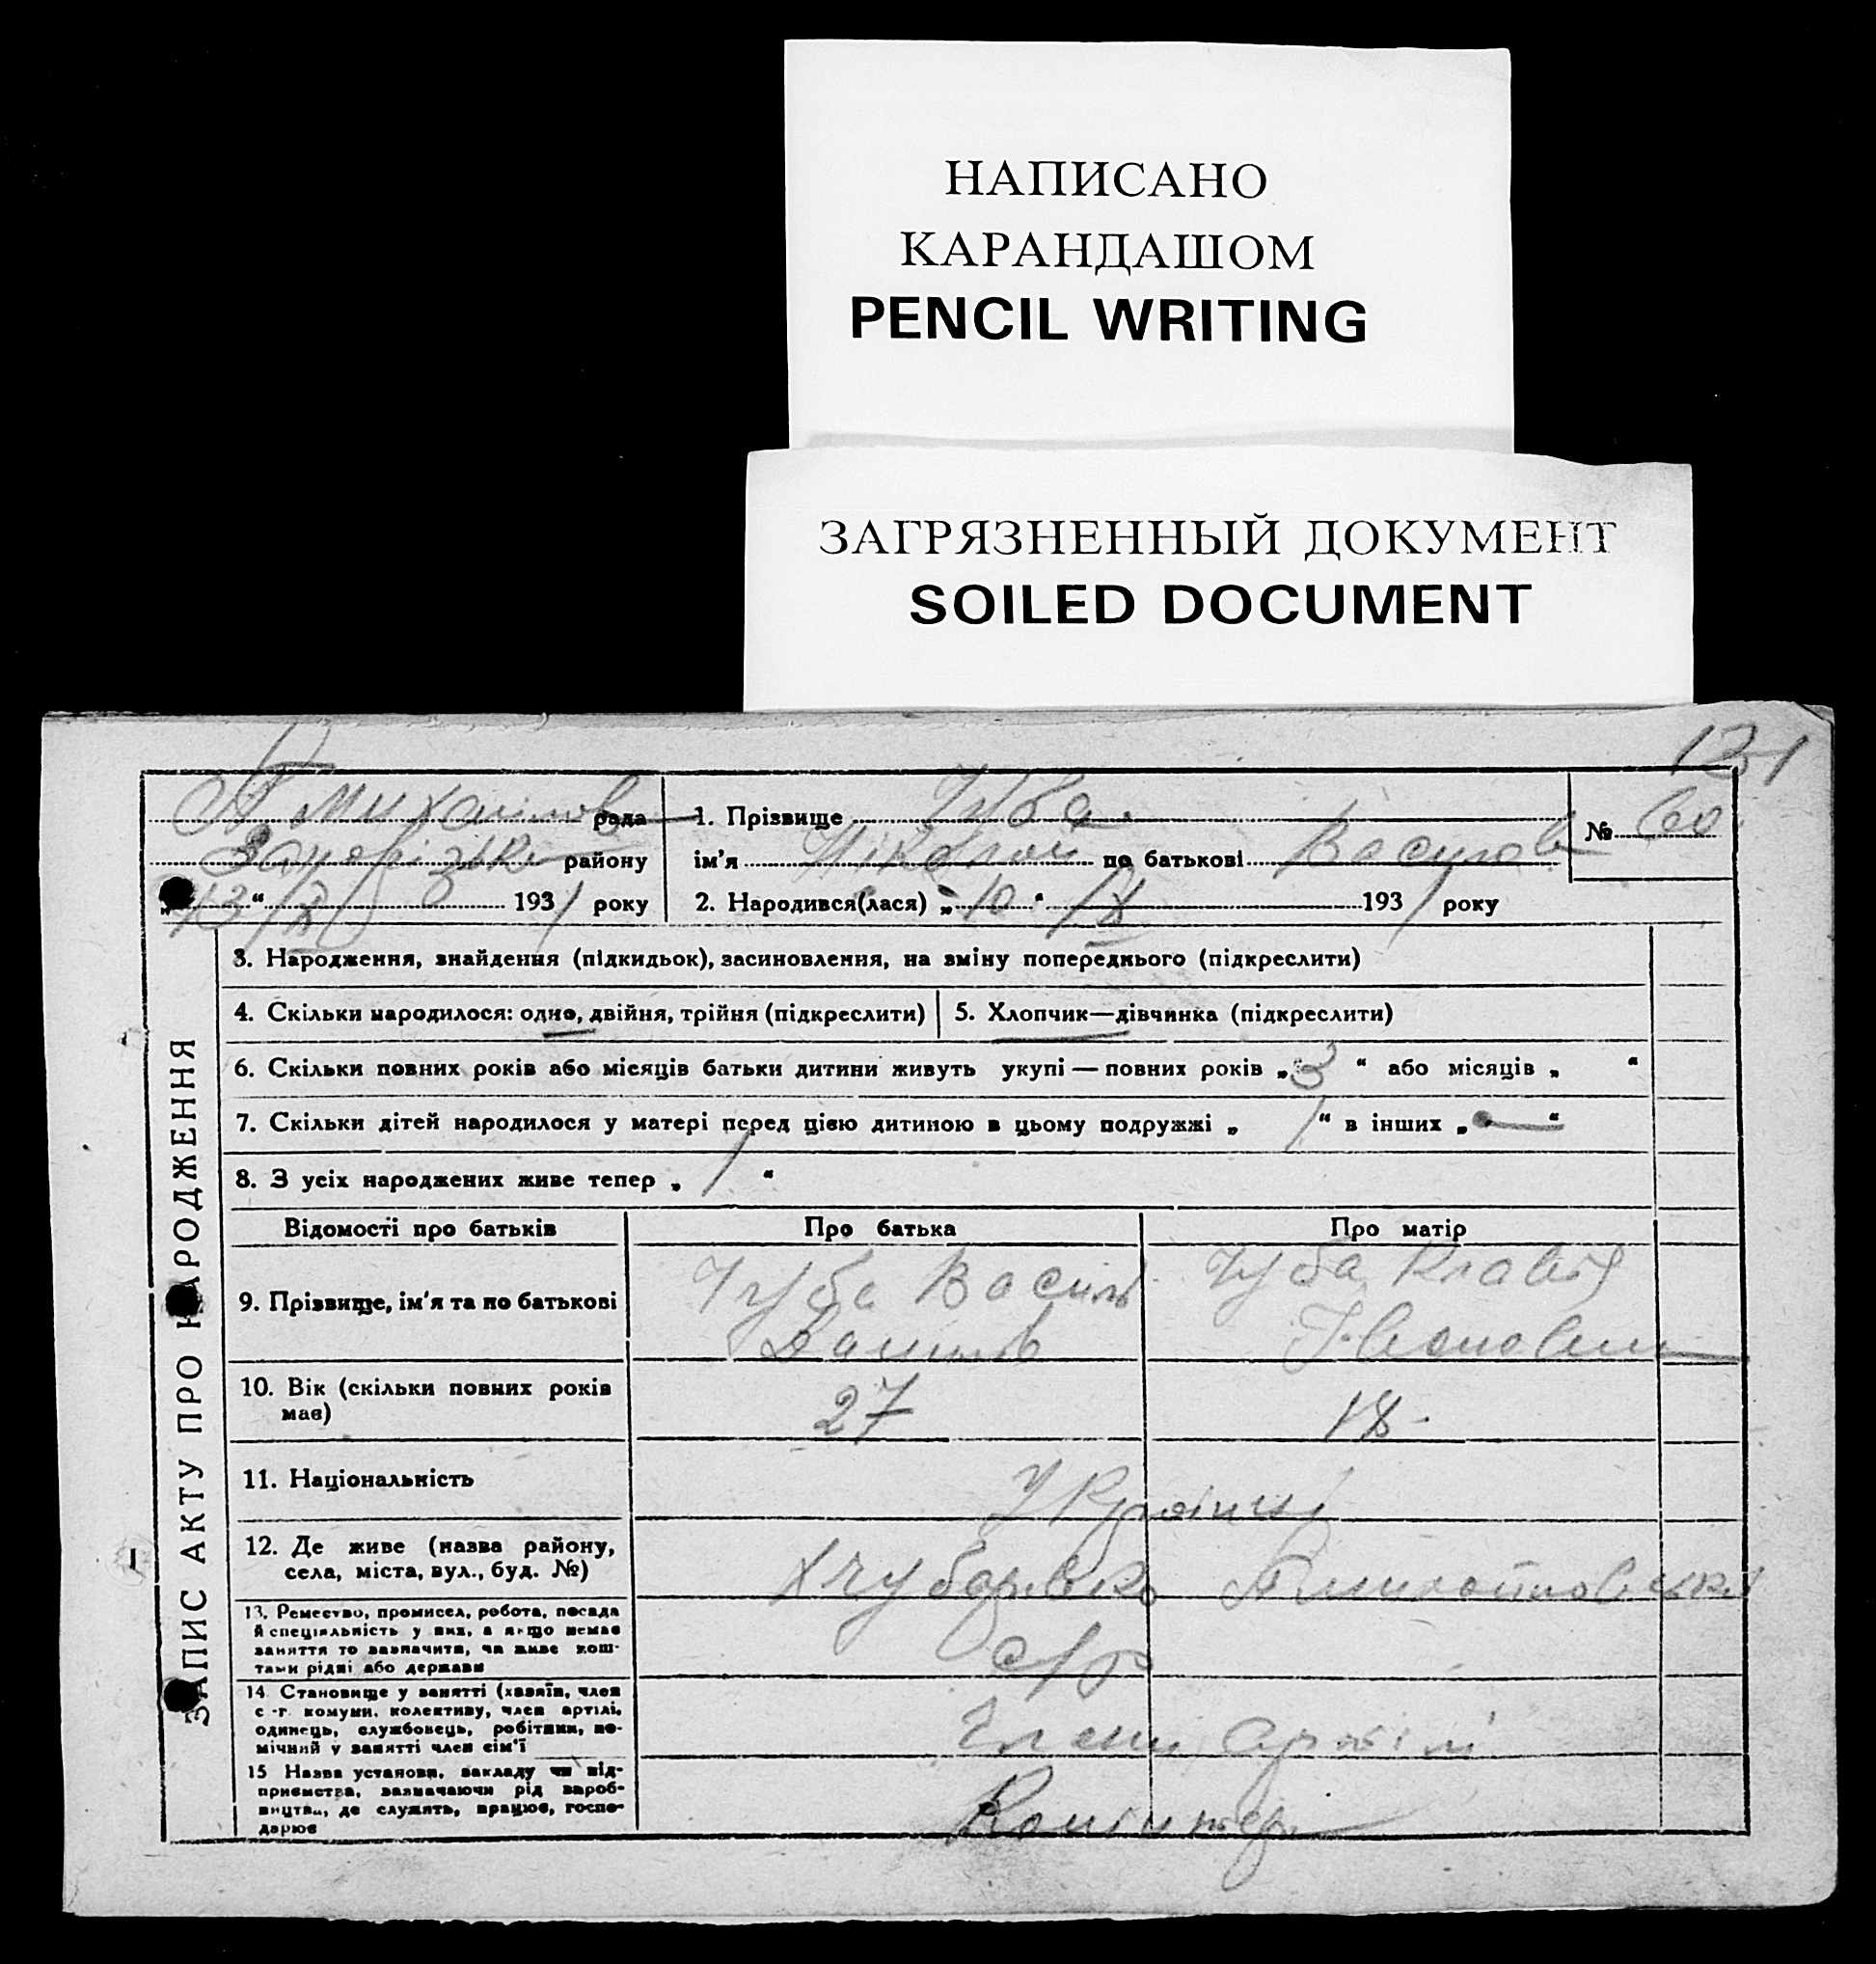 НАПИСАНО
КАРАНДАШОМ
PENCIL WRITING
ЗАГРЯЗНЕННЫЙ ДОКУМЕНТ
SOILED DOCUMENT
131
рада
району
"13/X" 1931 року
1. Прізвище Чуба
ім'я Ніколай по батькові Василов
№ 60
2. Народився(лася) „10" /X 1931 року
ЗАПИС АКТУ ПРО НАРОДЖЕННЯ
3. Народження, знайдення (підкидьок), засиновлення, на зміну попереднього (підкреслити)
4. Скільки народилося: одно, двійня, трійня (підкреслити)
5. Хлопчик—дівчинка (підкреслити)
6. Скільки повних років або місяців батьки дитини живуть укупі — повних років „3" або місяців „ "
7. Скільки дітей народилося у матері перед цією дитиною в цьому подружжі „1" в інших „—"
8. З усіх народжених живе тепер „1"
Відомості про батьків
Про батька
Про матір
9. Прізвище, ім'я та по батькові
Чуба Василь
Данилов
Чуба Клавдя
10. Вік (скільки повних років
має)
27
18.
11. Національність
Українці
12. Де живе (назва району,
села, міста, вул., буд. №)
13. Ремество, промисел, робота, посада
й спеціяльність у них, а якщо немає
заняття то зазначити, чи живе кош-
тами рідні або держави
с/г
14. Становище у занятті (хазяїн, член
с.-г. комуни, колективу, член артілі,
одинець, службовець, робітник, по-
мічний у занятті член сім'ї
Члени артілі
15 Назва установи, закладу чи під-
приємства, зазначаючи рід вироб-
ництва, де служить, працює, госпо-
дарює
Комінтерн
I